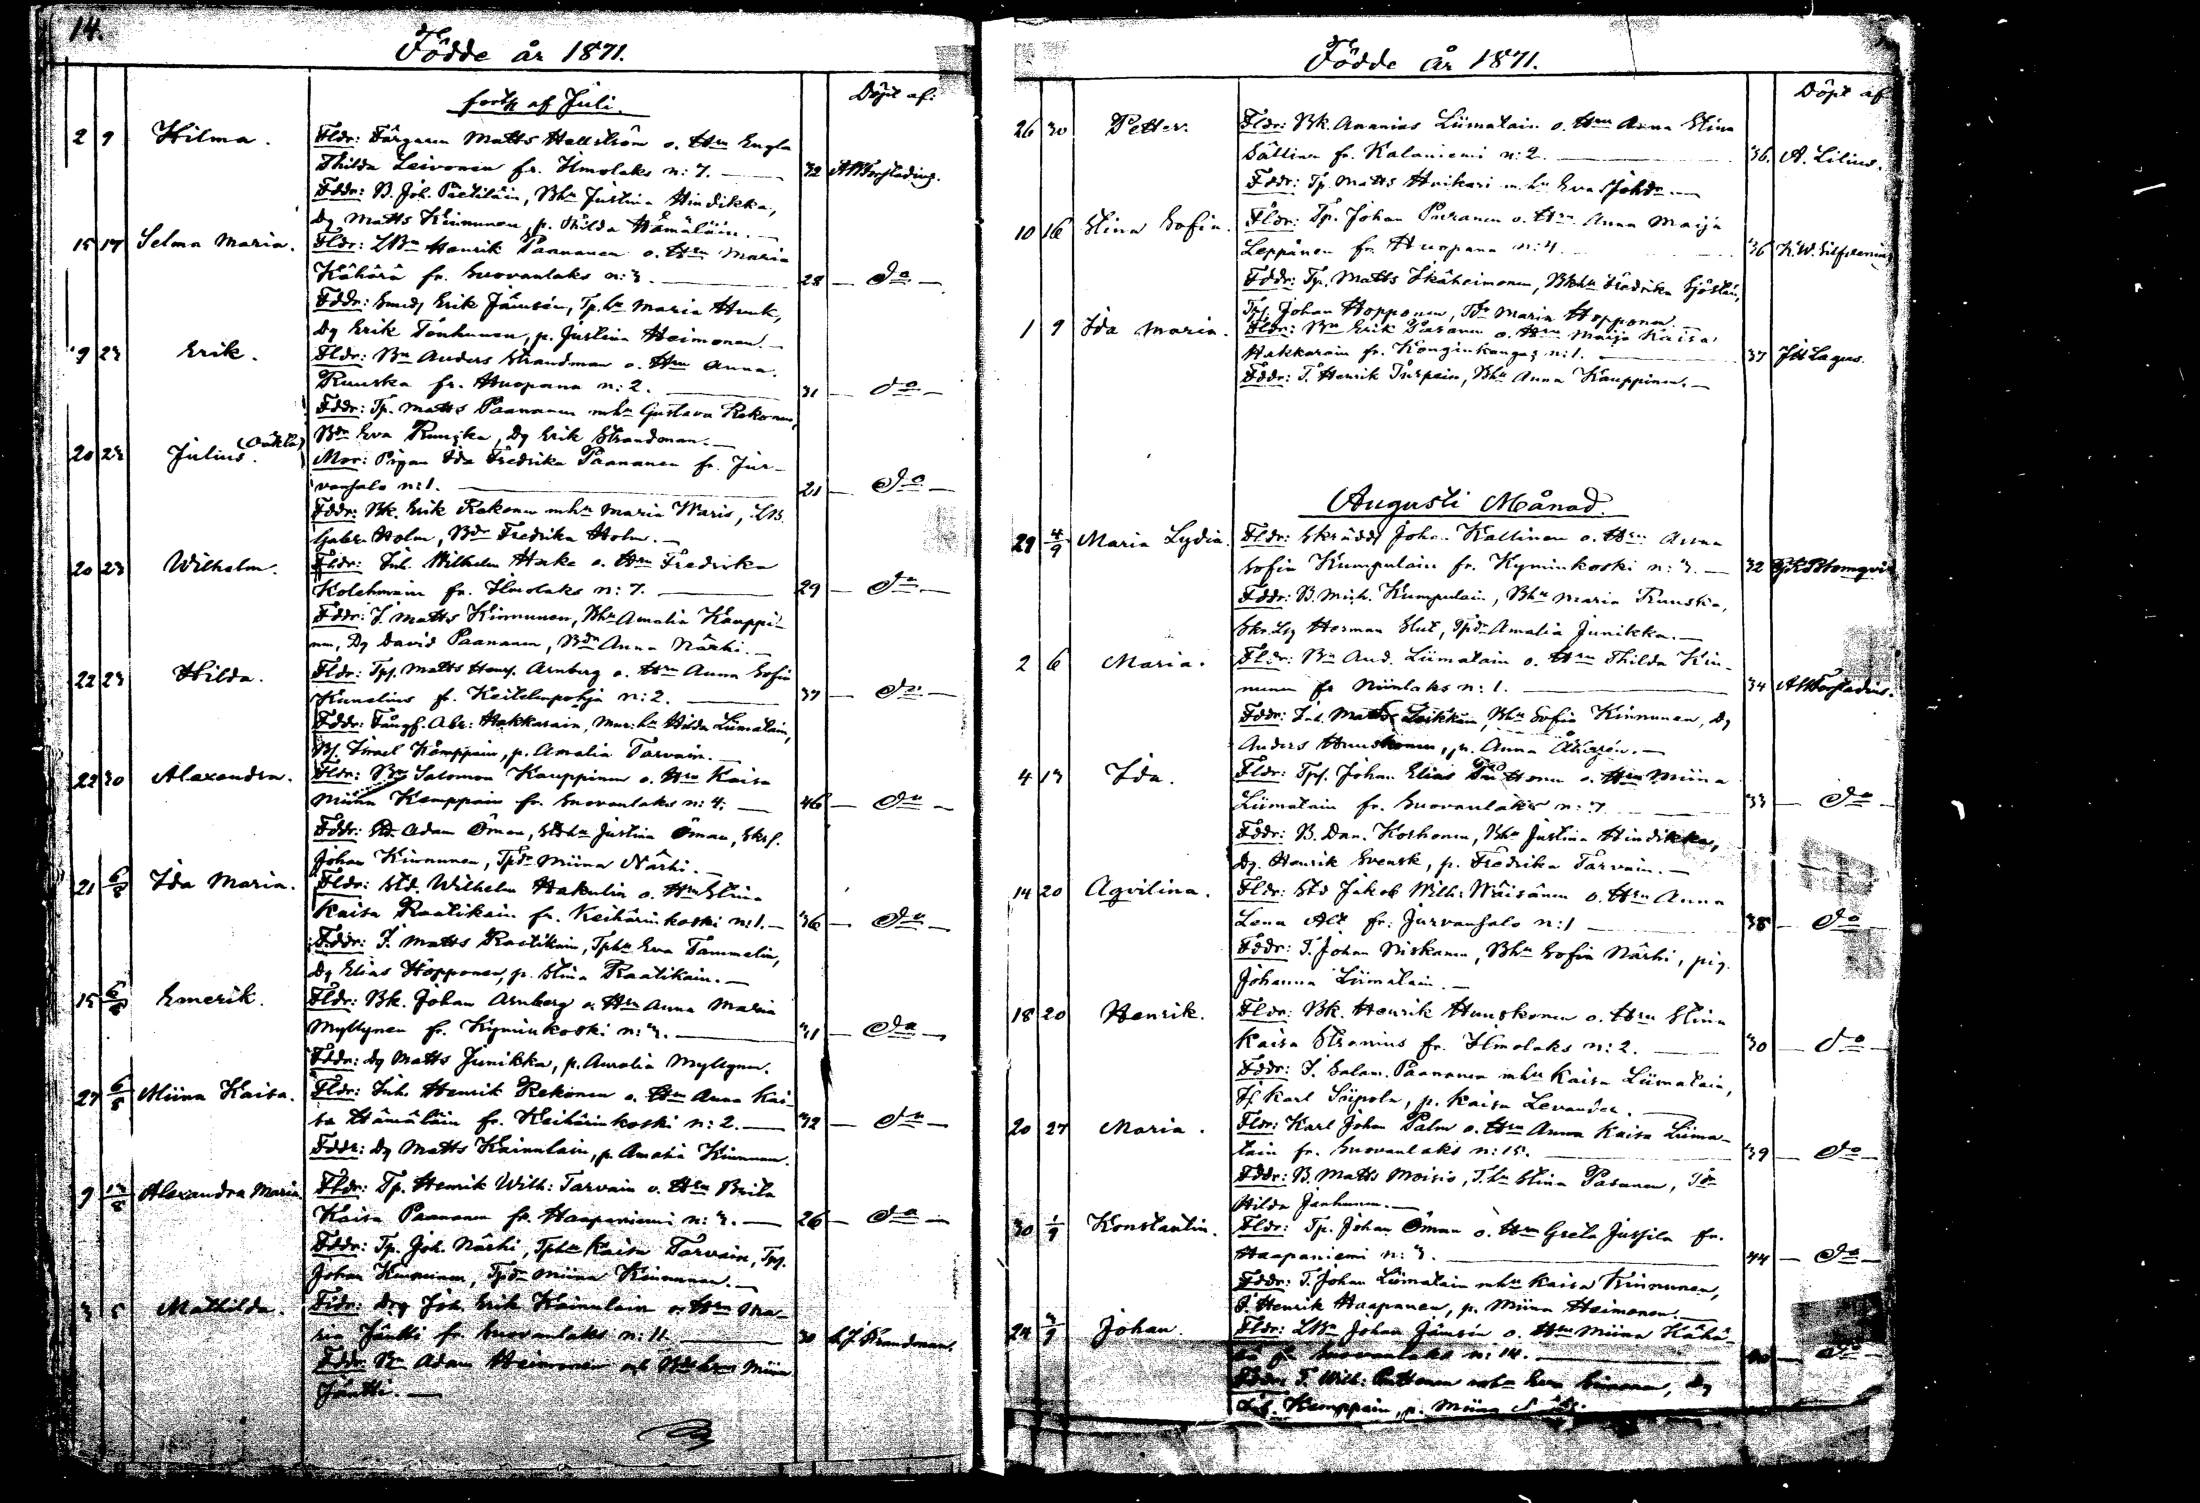 14.
Födde år 1871.
forts. af Juli.
Döpt af:
2 9 Hilma. Fldr: Färgaren Matts Hallström o. Hru Engla
Thilda Leivonen fr. Ilmolaks n: 7. — 32
Fddr: B. Joh. Paetiläin, Bhu Justina Hindikka,
Dg Matts Kinnunen, p. Thilda Hämäläin. —
15 17 Selma Maria. Fldr: LBn Henrik Paananen o. Hru Maria
Kähärä fr. Suovanlaks n: 3. — 28 — do —
Fddr: Smeds Erik Jämsén, Tp. hu Maria Hunk,
Dg Erik Tenhunen, p. Justina Heimonen. —
9 23 Erik. Fldr: Bn Anders Strandman o. Hru Anna
Ruuska fr. Huopana n: 2. — 31 — do —
Fddr: Tp. Matts Paananen mhu Gustava Rekonen,
Bdr Eva Ruuska, Dg Erik Strandman. —
20 23 Julius. (oäkta) Mor: Pigan Ida Fredrika Paananen fr. Jur-
vansalo n: 1. — 21 — do —
Fddr: Bk. Erik Rekonen mhu Maria Waris, LB.
Gabr. Holm, Bdr Fredrika Holm. —
20 23 Wilhelm. Fldr: Inh. Wilhelm Hake o. Hru Fredrika
Kolehmain fr. Ilmolaks n: 7. — 29 — do —
Fddr: I. Matts Kinnunen, Bhu Amalia Kauppi-
nen, Dg David Paananen, Bdr Anna Närhi. —
22 23 Hilda. Fldr: Tps. Matts Henr. Arnberg o. Hru Anna Sofia
Kunelius fr. Keitelenpohja n: 2. — 37 — do —
Fddr: Fångf. Abr: Hakkarain, Mur. hu Hilda Liimatain,
Bs. Israel Kämppain, p. Amalia Tarvain. —
22 30 Alexandra. Fldr: Bn Salomon Kauppinen o. Hru Kaisa
Miina Kemppain fr. Suovanlaks n: 4. — 46 — do —
Fddr: Std. Adam Öman, Stdhu Justina Öman, Skrf.
Johan Kinnunen, Tpdr Miina Närhi. —
21 6/8 Ida Maria. Fldr: Std. Wilhelm Hakulin o. Hru Stina
Kaisa Raatikain fr. Keihärinkoski n: 1. — 36 — do —
Fddr: I. Matts Raatikain, Tphu Eva Tammelin,
Dg Elias Hopponen, p. Stina Raatikain. —
15 6/8 Emerik. Fldr: Bk. Johan Arnberg o. Hru Anna Maria
Myllynen fr. Kyminkoski n: 3. — 31 — do —
Fddr: Dg Matts Junikka, p. Aurolia Myllynen.
27 6/8 Miina Kaisa. Fldr: Inh. Henrik Rekonen o. Hru Anna Kai-
sa Hämäläin fr. Keihärinkoski n: 2. — 32 — do —
Fddr: Dg Matts Kainulain, p. Amalia Kinnunen.
9 13/8 Alexandra Maria. Fldr: Tp. Henrik Wilh: Tarvain o. Hru Brita
Kaisa Paananen fr. Haapaniemi n: 3. — 26 — do —
Fddr: Tp. Joh. Närhi, Tphu Kaisa Tarvain, Tps.
Johan Kinnunen, Tpdr Miina Kinnunen. —
3 5 Mathilda. Fldr: Drg Joh. Erik Kainulain o. Hru Ma-
ria Jäntti fr. Suovanlaks n: 11. — 30
Fddr: Bn Adam Heimonen Miina
Jäntti. —
Födde År 1871.
Döpt af
26 30 Petter. Fldr: Bk. Ananias Liimatain o. Hru Anna Stina
Sällinen fr. Kalaniemi n: 2. — 36. A. Lilius.
Fddr: Tp. Matts Huikari m. hu Eva —
10 16 Stina Sofia. Fldr: Tp. Johan Puranen o. Hru Anna Maija
Leppänen fr. Huopana n: 4. 36
Fddr: Tp. Matts Ikäheimonen, Bkhu Fredrika Sjöstén,
Tps. Johan Hopponen, Tdr Maria Hopponen. —
1 9 Ida Maria. Fldr: Bn Erik Pasanen o. Hru Maija Kaisa
Hakkarain fr. Konginkangas n: 1. — 37 Lagus.
Fddr: T. Henrik Turpein, Bhu Anna Kauppinen. —
Augusti Månad.
29 4/9 Maria Lydia. Fldr: Skrädd. Johan Kallinen o. Hru Anna
Sofia Kumpulain fr. Kyminkoski n: 3. — 32 Blomqvist
Fddr: B. Mich. Kumpulain, Bhu Maria Ruuska,
Skr. Lsg Herman Slut, Tpdr Amalia Junikka. —
2 6 Maria. Fldr: Bn And. Liimatain o. Hru Thilda Kin-
nunen fr Niinilaks n: 1. — 34
Fddr: Inh. Matts Leikkain, Bhu Sofia Kinnunen, Dg
Anders Huuskonen, p. Anna Åkerén. —
4 13 Ida. Fldr: Tps. Johan Elias Puttonen o. Hru Miina
Liimatain fr. Suovanlaks n: 7. — 33 — do —
Fddr: B. Dan. Koskonen, Bhu Justina Hindikka,
Dg. Henrik Svensk, p. Fredrika Tarvain. —
14 20 Aqvilina. Fldr: Std Jakob Wilh: Wäisänen o. Hru Anna
Lena Alt fr. Jurvansalo n: 1 — 38 — do —
Fddr: T. Johan Niskanen, Bhu Sofia Närhi, pig.
Johanna Liimatain. —
18 20 Henrik. Fldr: Bk. Henrik Huuskonen o. Hru Stina
Kaisa Stranius fr. Ilmolaks n: 2. — 30 — do —
Fddr: I. Salam. Paananen mhu Kaisa Liimatain,
Karl Siipola, p. Kaisa Levander. —
20 27 Maria. Fldr: Karl Johan Palm o. Hru Anna Kaisa Liima-
tain fr. Suovanlaks n: 15. — 39 — do —
Fddr: B. Matts Moisio, T. hu Stina Pasanen, Tdr
Hilda Janhunen. —
30 1/9 Konstantin. Fldr: Tp. Johan Öman o. Hru Greta Jussila fr.
Haapaniemi n: 3. — 44 — do —
Fddr: T. Johan Liimatain mhu Kaisa Kinnunen,
I. Henrik Haapanen, p. Miina Heimonen —
24 3/9 Johan. Fldr: LBn Johan Jämsén o. Hru Miina Kähä-
rä fr Suovanlaks n: 14. — — do —
Fddr: T. Wilh: Puttonen mhu Eva Simonen, Dg
Kemppain, p. Miina